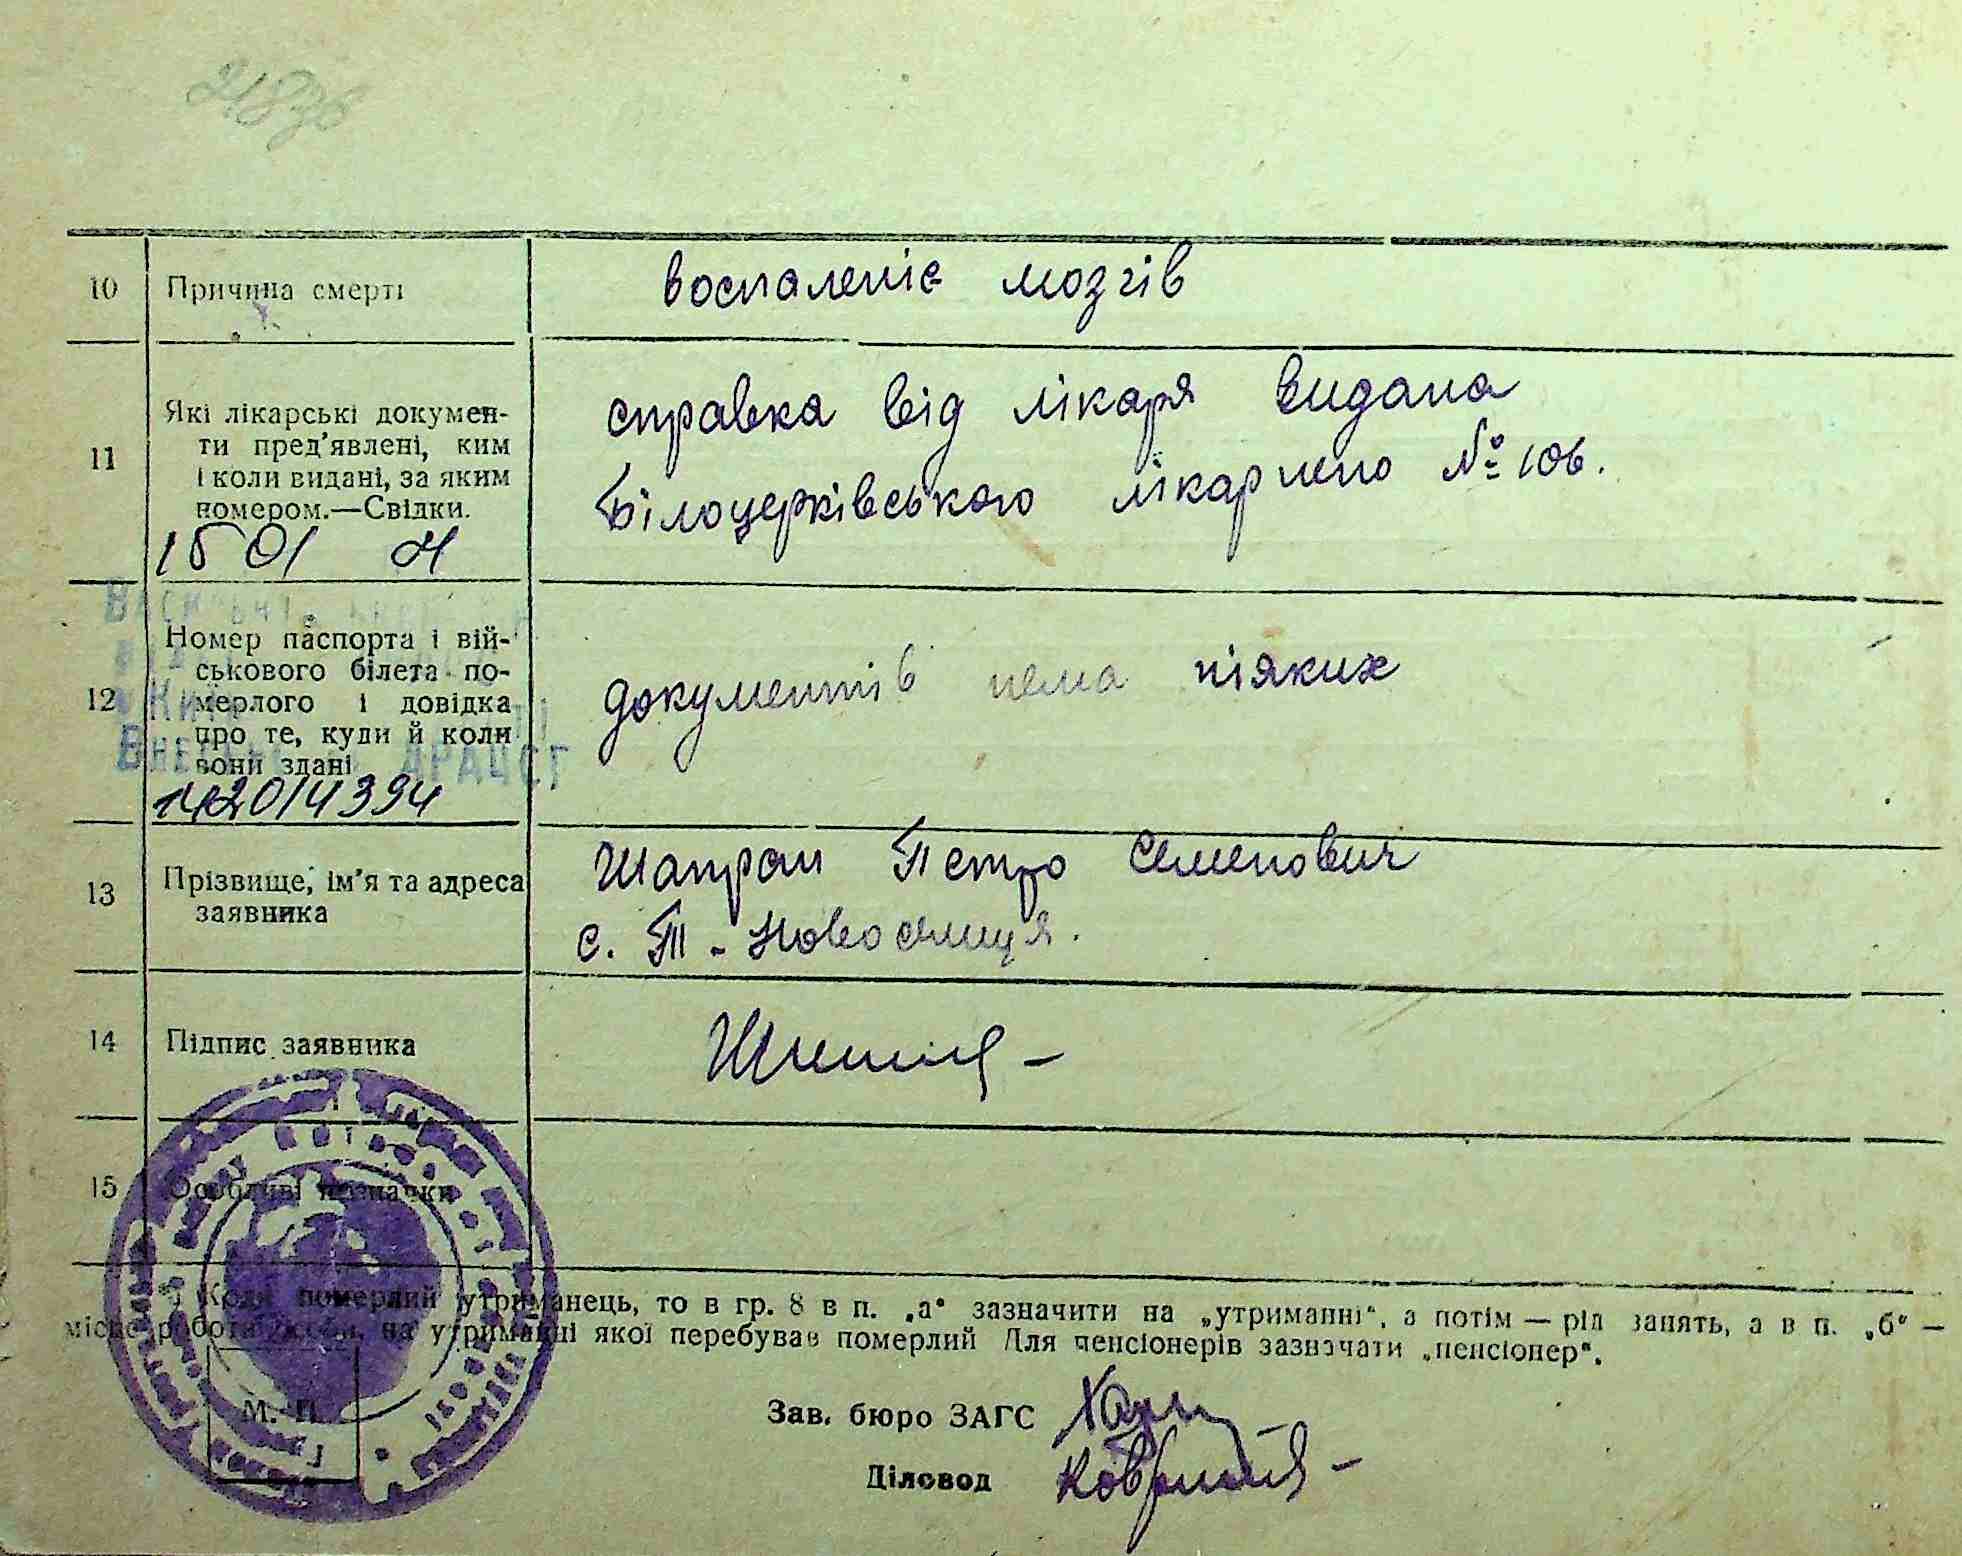 10 Причина смерті
воспаленіє мозгів
11 Які лікарські докумен-
ти пред'явлені, ким
і коли видані, за яким
номером.—Свідки.
справка від лікаря видана
Білоцерківського лікарнею № 106.
1501
12 Номер паспорта і вій-
ськового білета по-
мерлого і довідка
про те, куди й коли
вони здані
документів нема ніяких
142014394
13 Прізвище, ім'я та адреса
заявника
Шапран Петро Семенович
с. Т-Новоселиця.
14 Підпис заявника
15 Особливі позначки
Коли померлий утриманець, то в гр. 8 в п. „а“ зазначити на „утриманні“, а потім — рід занять, а в п. „б“ —
місце роботи особи, на утриманні якої перебував померлий Для пенсіонерів зазначати „пенсіонер“.
М. П.
Зав. бюро ЗАГС
Діловод